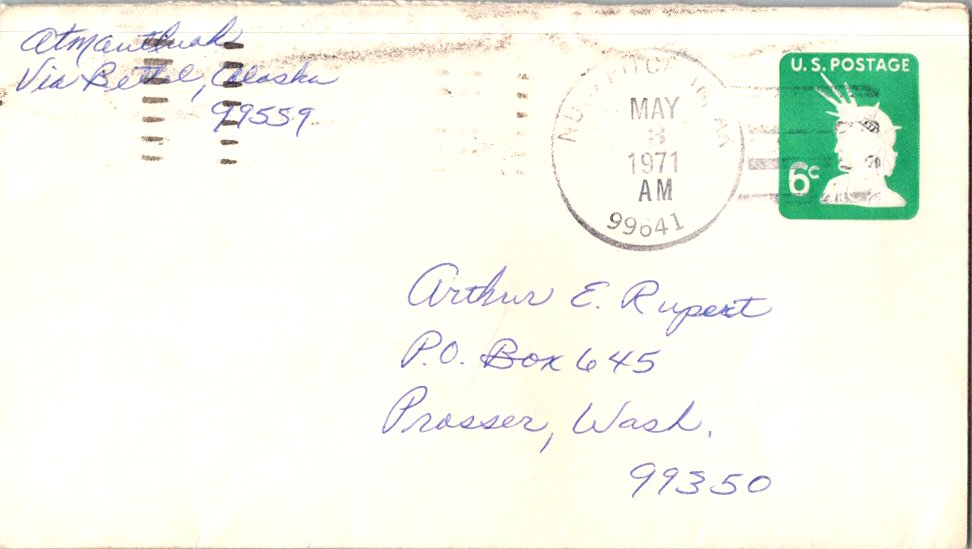 Atmautluak
Via Bethel, Alaska
99559
MAY
3
1971
AM
99641
U.S. POSTAGE
6c
Arthur E. Rupert
P.O. Box 645
Prosser, Wash.
99350